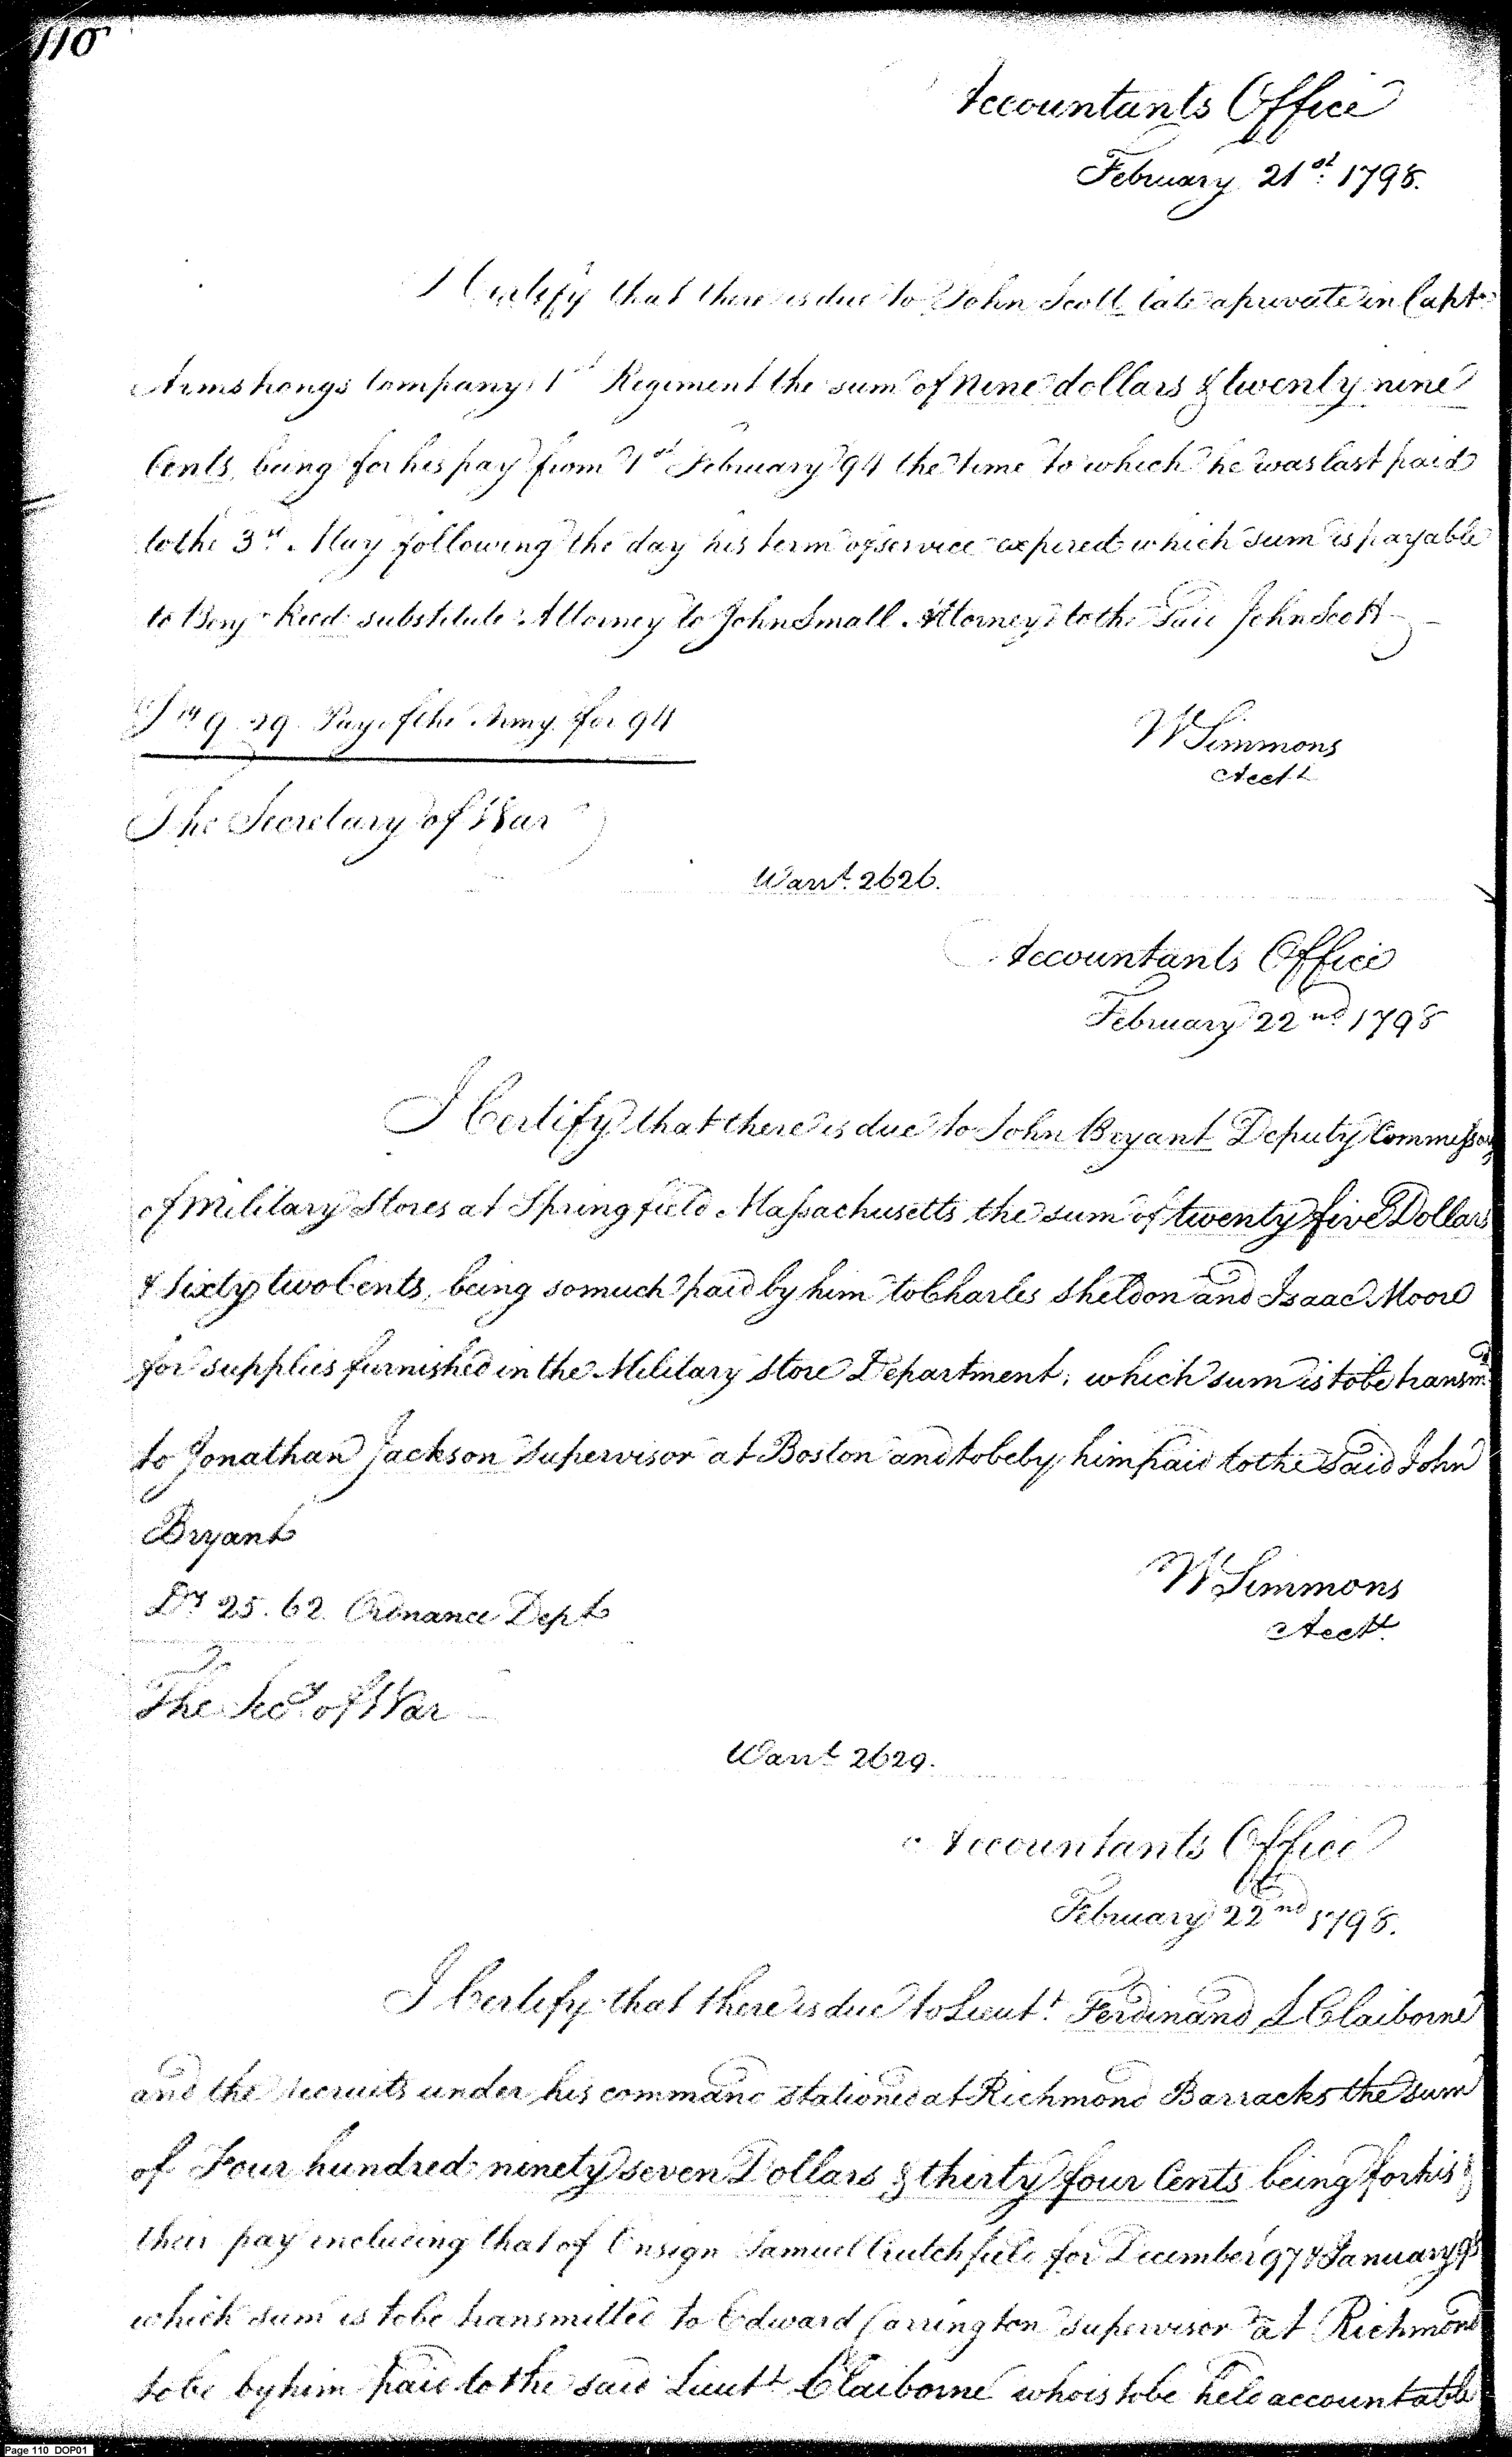 110
Accountants Office
February 21st. 1798.
I Certify that there is due to John Scott late a private in Captn
Armstrongs Company 1st Regiment the sum of nine dollars & twenty nine
Cents, being for his pay from 1st February 94 the time to which he was last paid
to the 3rd May following the day his term of service expired which sum is payable
to Benj Reed substitute Attorney to John Small Attorney to the said John Scott
9.29 Pay of the Army for 94
W Simmons
Acctt
The Secretary of War
Warrt. 2626.
Accountants Office
February 22nd 1798
I Certify that there is due to John Bryant Deputy Commissary
of Military Stores at Springfield Massachusetts the sum of twenty five Dollars
& Sixty two Cents, being so much paid by him to Charles Sheldon and Isaac Moore
for supplies furnished in the Military Store Department, which sum is to be transmd
to Jonathan Jackson Supervisor at Boston and to be by him paid to the said John
Bryant
Drs 25.62. Ordnance Dept
W Simmons
Acctt
The Secy. of War
Warrt 2629.
Accountants Office
February 22nd 1798.
I Certify that there is due to Lieutt. Ferdinand L Claiborne
and the recruits under his command stationed at Richmond Barracks the sum
of Four hundred ninety seven Dollars & thirty four Cents being for his &
their pay including that of Ensign Samuel Crutchfield for December 97 & January 98
which sum is to be transmitted to Edward Carrington Supervisor at Richmond
to be by him paid to the said Lieutt Claiborne who is to be held accountable
Page 110 DOP01